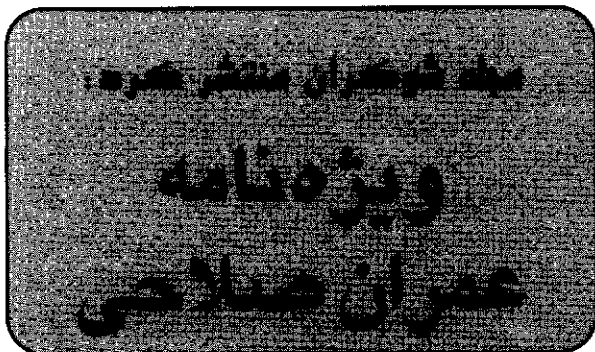 مجله شوکران منتشر کرد:
ویژه‌نامه
عمران صلاحی